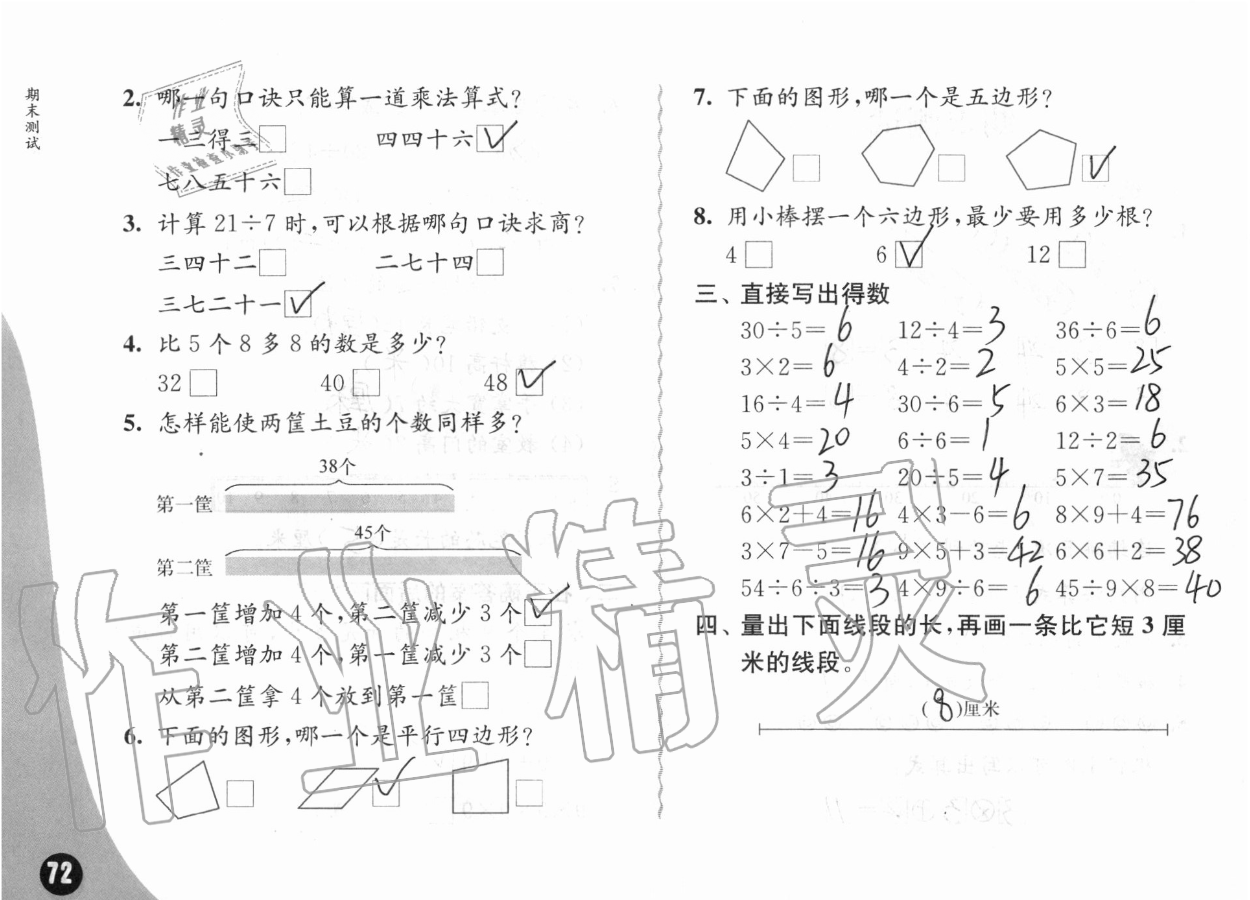 期末测试
2. 哪一句口诀只能算一道乘法算式?
一三得三□ 四四十六☑
七八五十六□
3. 计算 21÷7 时,可以根据哪句口诀求商?
三四十二□ 二七十四□
三七二十一☑
4. 比 5 个 8 多 8 的数是多少?
32□ 40□ 48☑
5. 怎样能使两筐土豆的个数同样多?
38个
第一筐
45个
第二筐
第一筐增加 4 个,第二筐减少 3 个☑
第二筐增加 4 个,第一筐减少 3 个□
从第二筐拿 4 个放到第一筐□
6. 下面的图形,哪一个是平行四边形?
72
7. 下面的图形,哪一个是五边形?
8. 用小棒摆一个六边形,最少要用多少根?
4□ 6☑ 12□
三、直接写出得数
30÷5=6 12÷4=3 36÷6=6
3×2=6 4÷2=2 5×5=25
16÷4=4 30÷6=5 6×3=18
5×4=20 6÷6=1 12÷2=6
3÷1=3 20÷5=4 5×7=35
6×2+4=16 4×3-6=6 8×9+4=76
3×7-5=16 9×5+3=42 6×6+2=38
54÷6÷3=3 4×9÷6=6 45÷9×8=40
四、量出下面线段的长,再画一条比它短 3 厘
米的线段。
(8)厘米
作业精灵